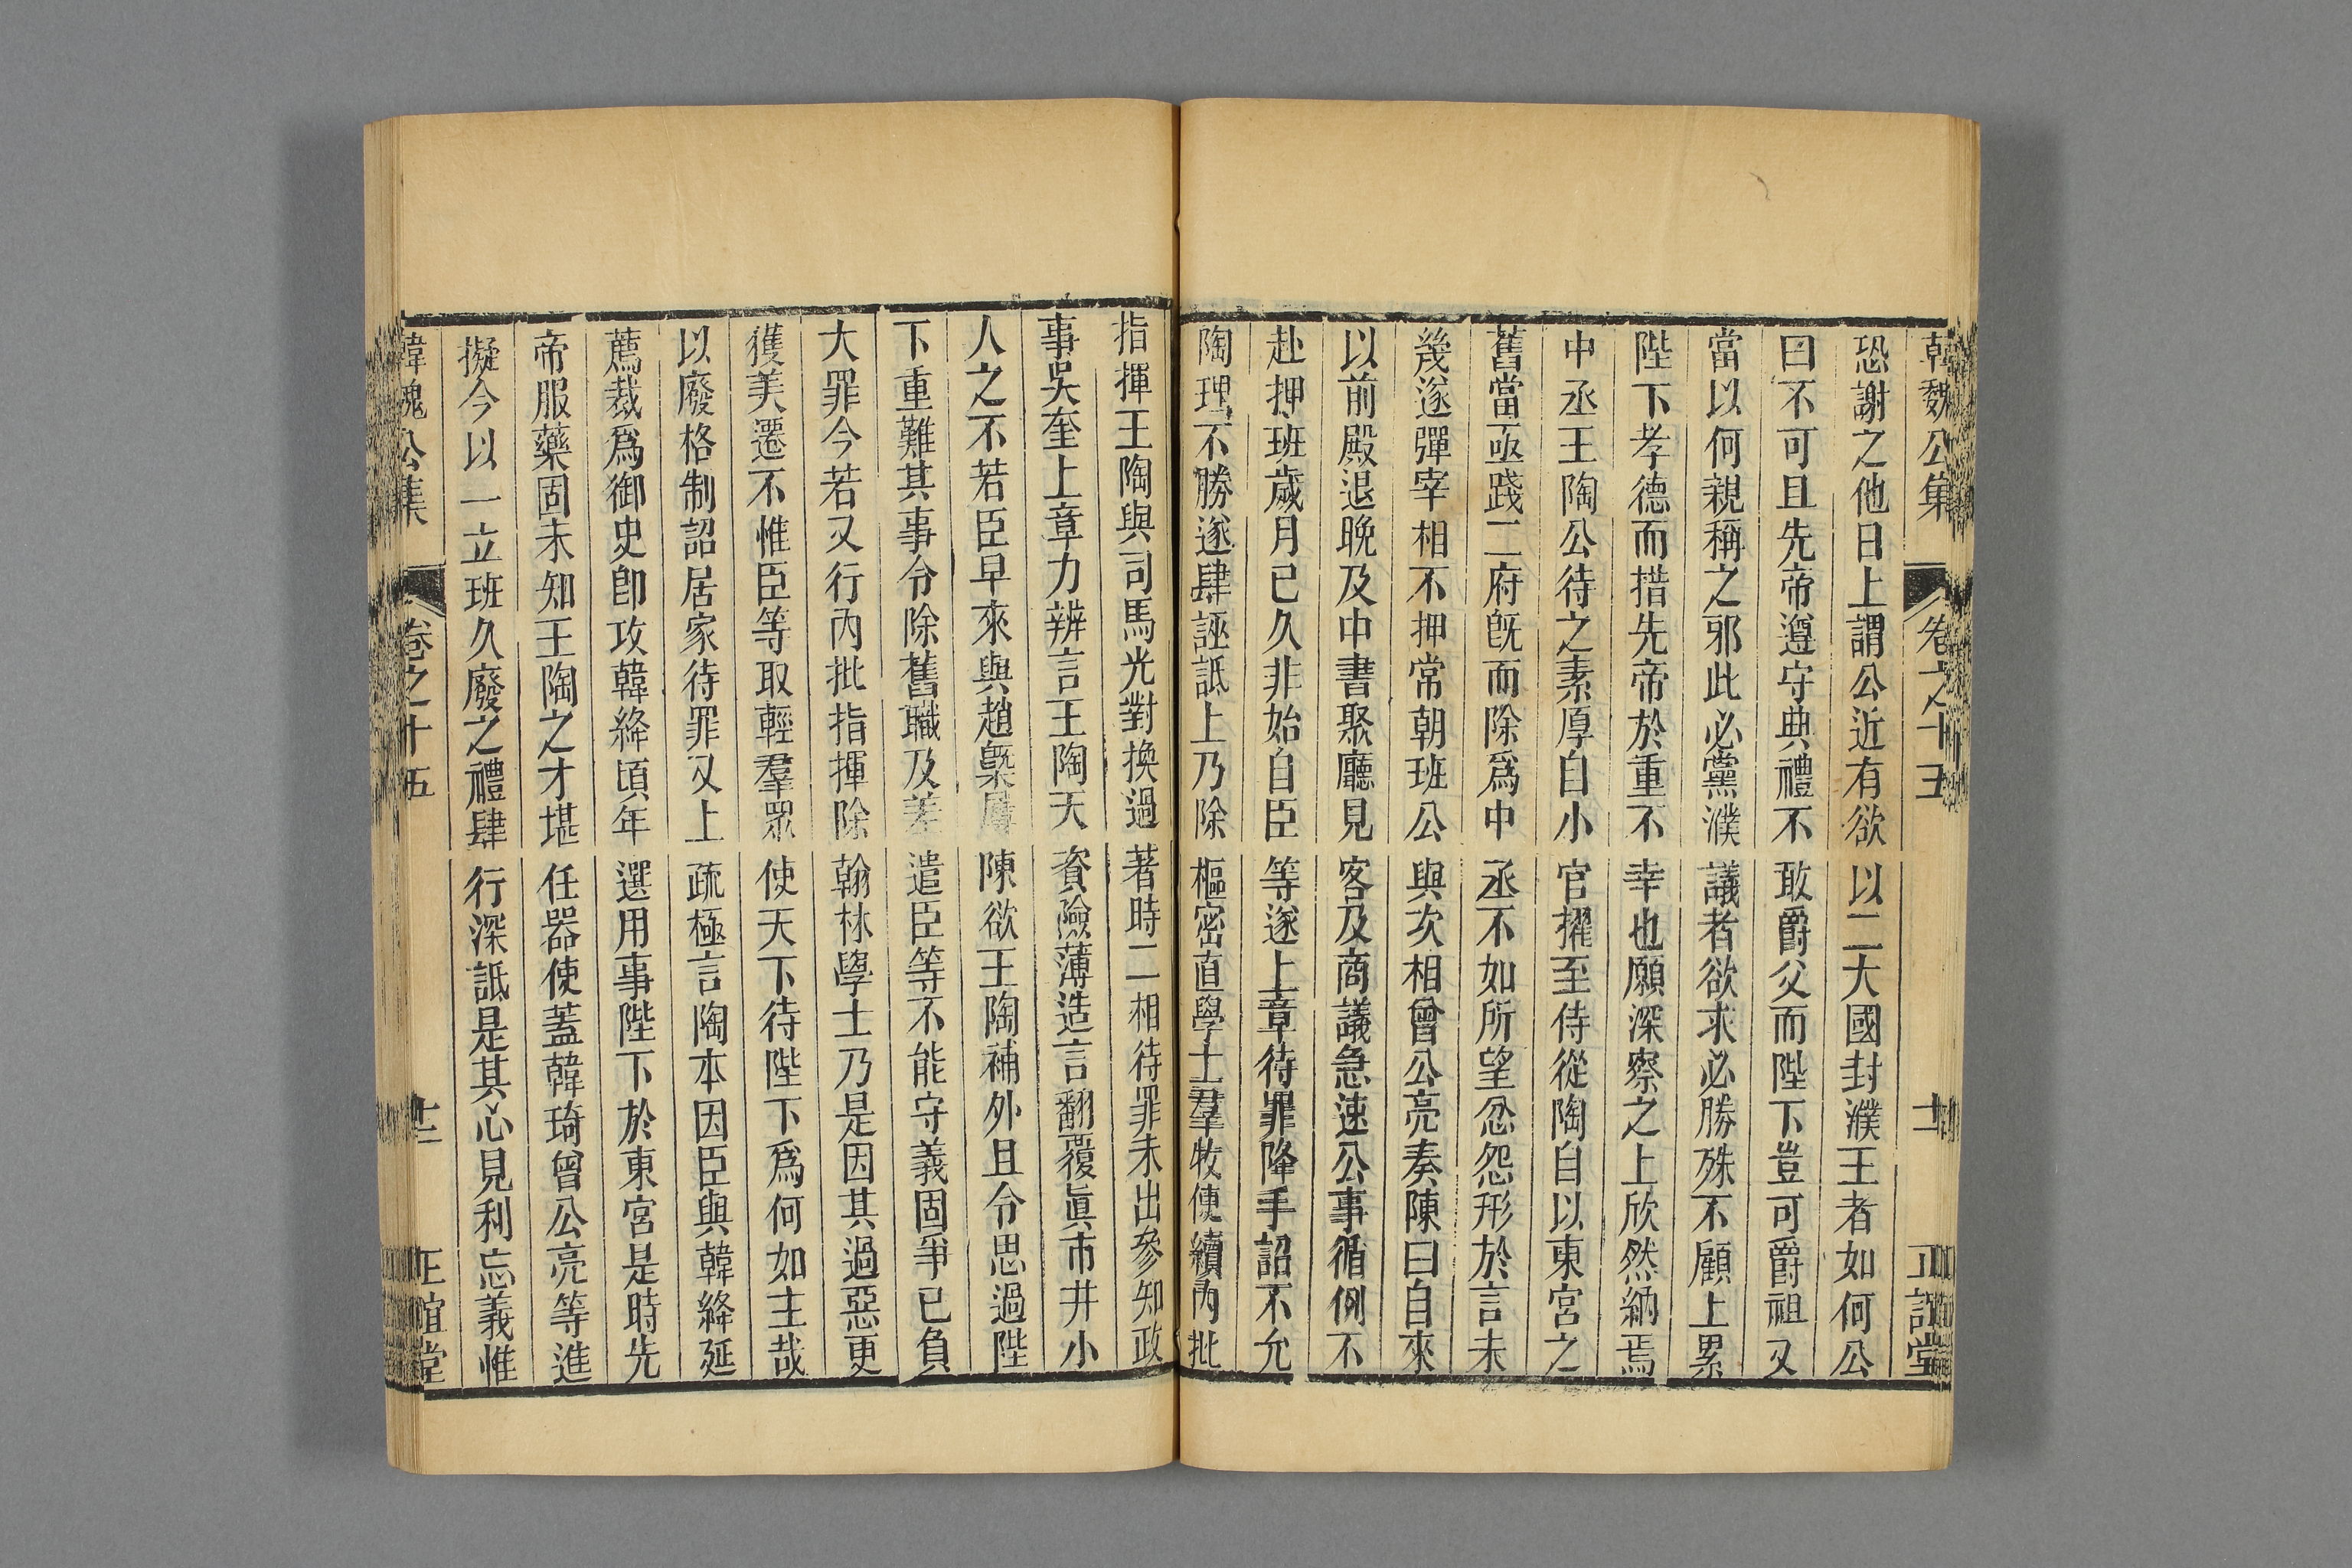 韓魏公集 卷之十五 十一 正誼堂
恐謝之他日上謂公近有欲以二大國封濮王者如何公
曰不可且先帝遵守典禮不敢爵父而陛下豈可爵祖又
當以何親稱之邪此必黨濮議者欲求必勝殊不顧上累
陛下孝德而措先帝於重不幸也願深察之上欣然納焉
中丞王陶公待之素厚自小官擢至侍從陶自以東宮之
舊當亟踐二府旣而除爲中丞不如所望忿怨形於言未
幾遂彈宰相不押常朝班公與次相曾公亮奏陳曰自來
以前殿退晚及中書聚廳見客及商議急速公事循例不
赴押班歲月已久非始自臣等遂上章待罪降手詔不允
陶理不勝遂肆誣詆上乃除樞密直學士羣牧使續內批
指揮王陶與司馬光對換過著時二相待罪未出參知政
事吳奎上章力辨言王陶天資險薄造言翻覆眞市井小
人之不若臣早來與趙槩屢陳欲王陶補外且令思過陛
下重難其事令除舊職及差遣臣等不能守義固爭已負
大罪今若又行內批指揮除翰林學士乃是因其過惡更
獲美遷不惟臣等取輕羣眾使天下待陛下爲何如主哉
以廢格制詔居家待罪又上疏極言陶本因臣與韓絳延
薦裁爲御史卽攻韓絳頃年選用事陛下於東宮是時先
帝服藥固未知王陶之才堪任器使蓋韓琦曾公亮等進
擬今以一立班久廢之禮肆行深詆是其心見利忘義惟
韓魏公集 卷之十五 十二 正誼堂